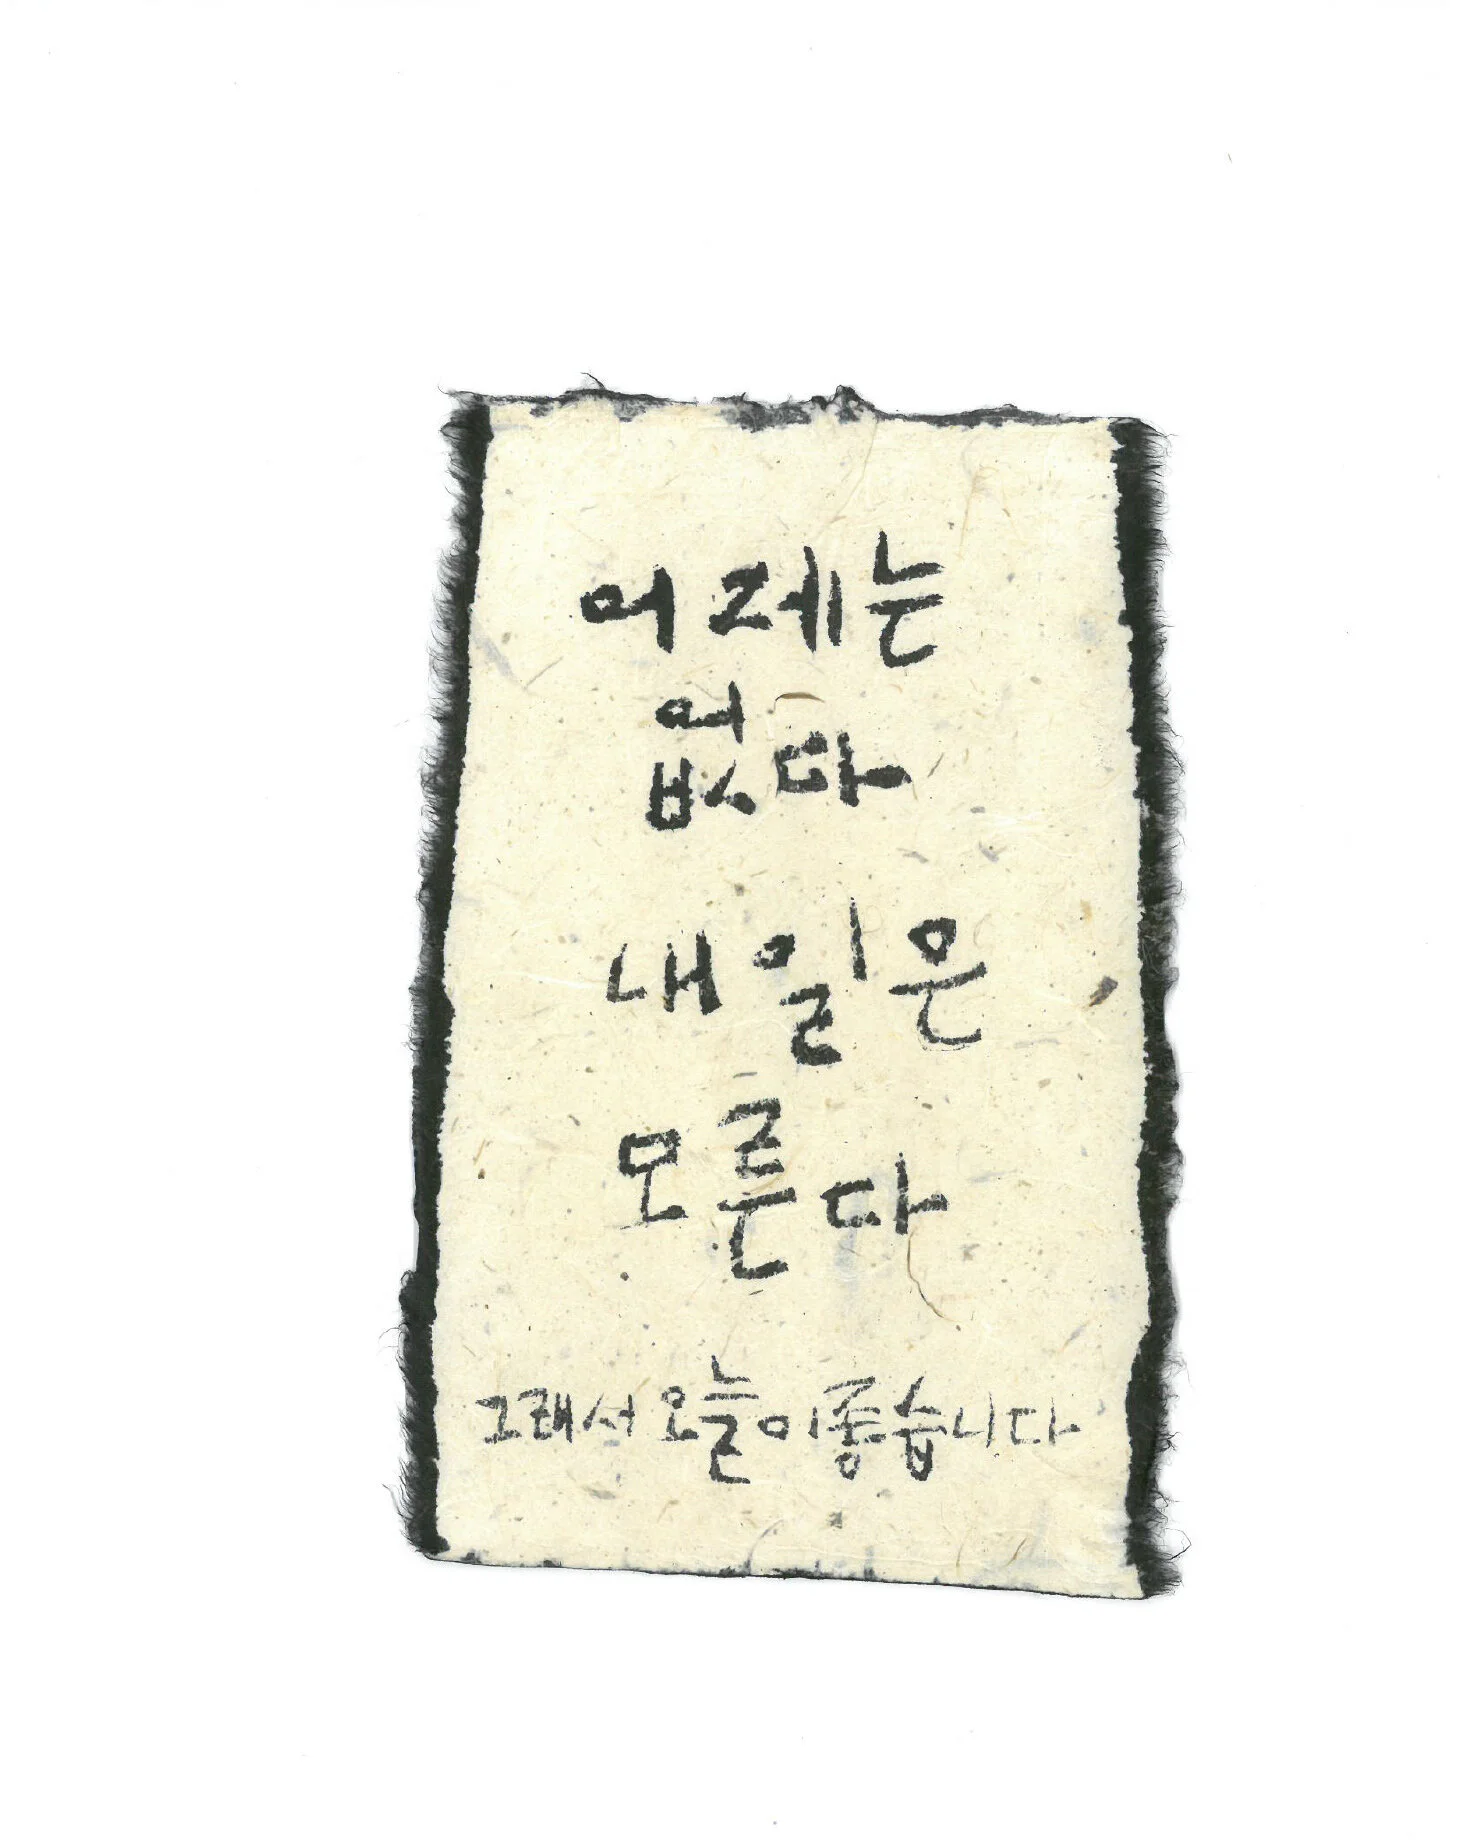 어제는
없다
내일은
모른다
그래서 오늘이 좋습니다